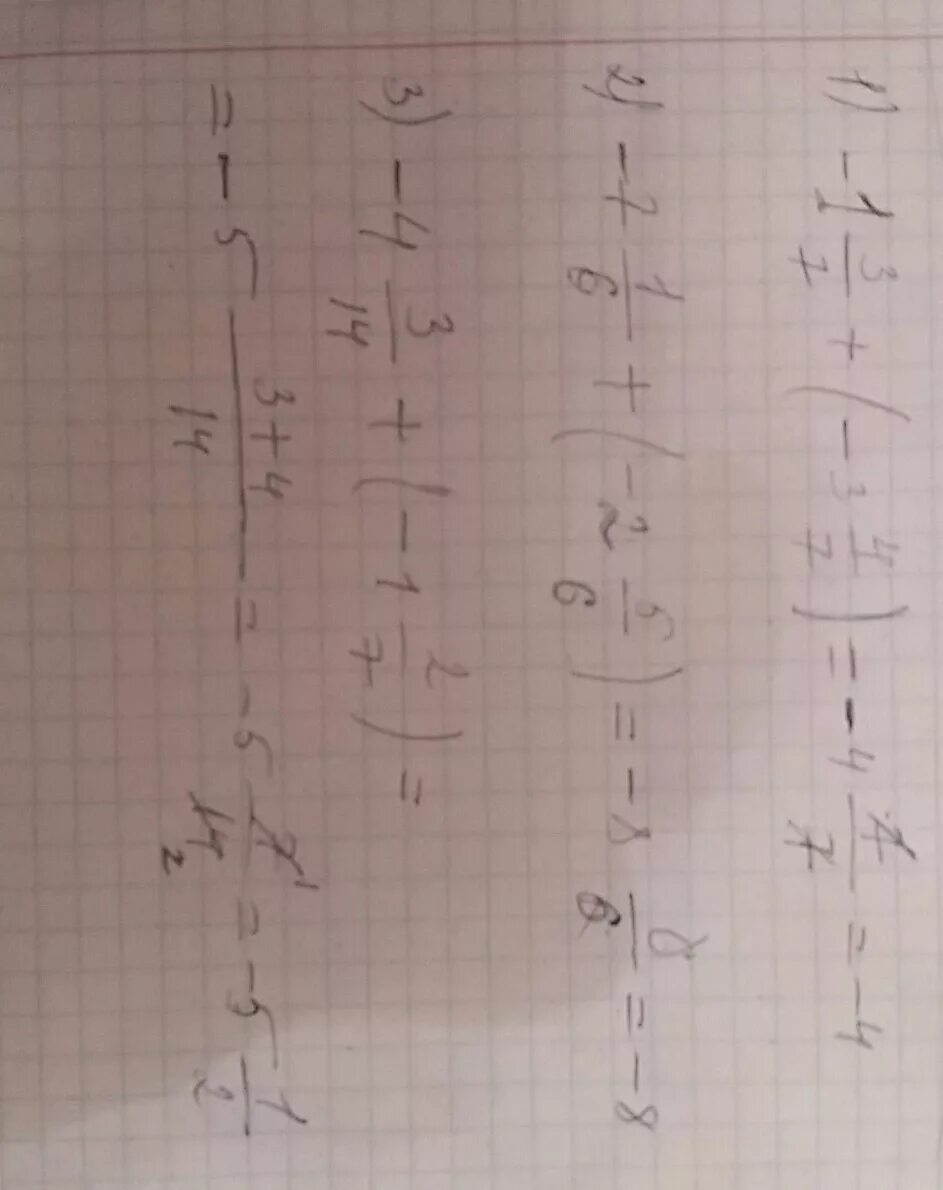 1) -1 3/7 + (-3 4/7) = -4 7/7 = -4
2) -7 1/6 + (-2 5/6) = -8 8/6 = -8
3) -4 3/14 + (-1 2/7) =
= -5 (3+4)/14 = -5 7 1/14 2 = -5 1/2